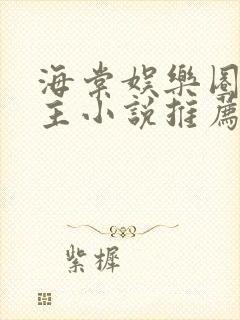 海棠娛樂圈
主小說推薦
紫樨